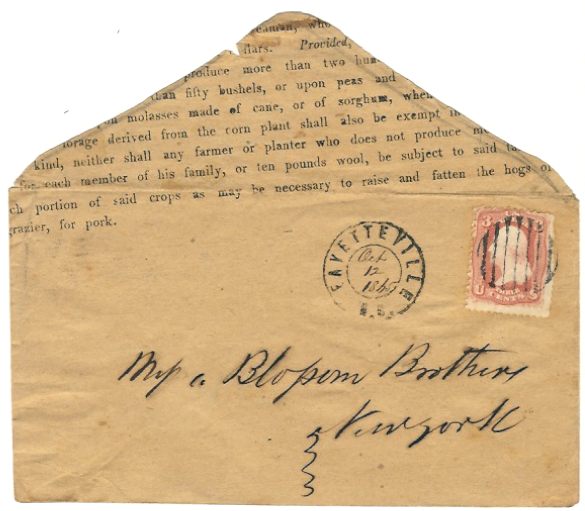 eaman, who
llars. Provided,
produce more than two hun
than fifty bushels, or upon peas and
on molasses made of cane, or of sorghum, when
forage derived from the corn plant shall also be exempt in
kind, neither shall any farmer or planter who does not produce mo
for each member of his family, or ten pounds wool, be subject to said ta
ch portion of said crops as may be necessary to raise and fatten the hogs of
grazier, for pork.
FAYETTEVILLE
Oct
12
1865
N.C.
3
U
CENTS
S
Blossom Brothers
New york